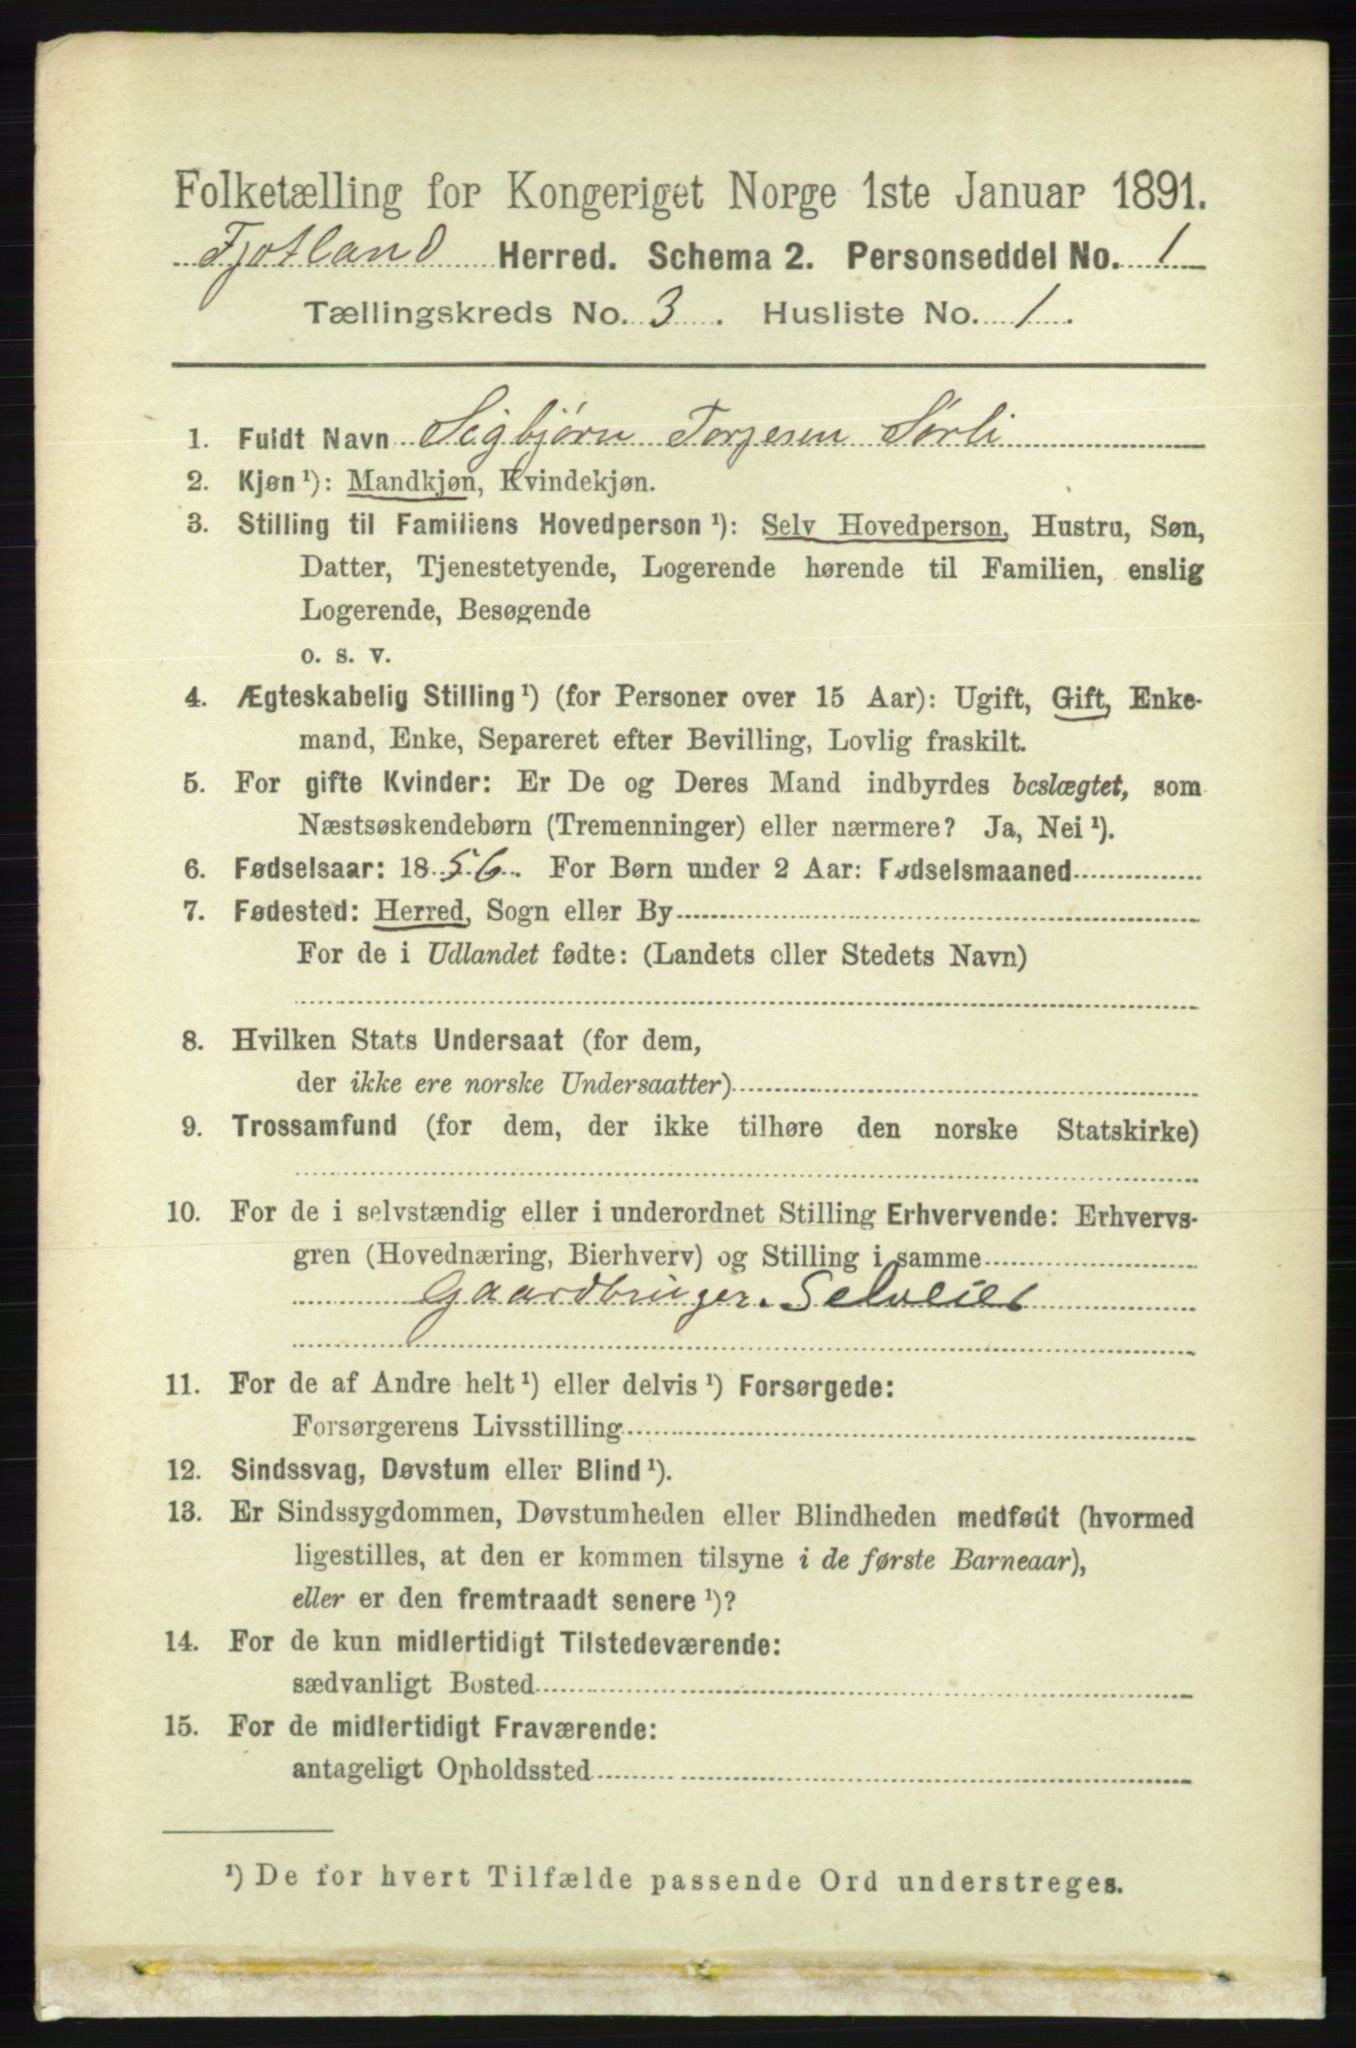 Folketælling for Kongeriget Norge 1ste Januar 1891.
Fjotland Herred. Schema 2. Personseddel No. 1
Tællingskreds No. 3. Husliste No. 1.
1. Fuldt Navn Sigbjørn Torjesen Sørli
2. Kjøn ¹): Mandkjøn, Kvindekjøn.
3. Stilling til Familiens Hovedperson ¹): Selv Hovedperson, Hustru, Søn,
Datter, Tjenestetyende, Logerende hørende til Familien, enslig
Logerende, Besøgende
o. s. v.
4. Ægteskabelig Stilling ¹) (for Personer over 15 Aar): Ugift, Gift, Enke-
mand, Enke, Separeret efter Bevilling, Lovlig fraskilt.
5. For gifte Kvinder: Er De og Deres Mand indbyrdes beslægtet, som
Næstsøskendebørn (Tremenninger) eller nærmere? Ja, Nei ¹).
6. Fødselsaar: 1856. For Børn under 2 Aar: Fødselsmaaned
7. Fødested: Herred, Sogn eller By
For de i Udlandet fødte: (Landets eller Stedets Navn)
8. Hvilken Stats Undersaat (for dem,
der ikke ere norske Undersaatter)
9. Trossamfund (for dem, der ikke tilhøre den norske Statskirke)
10. For de i selvstændig eller i underordnet Stilling Erhvervende: Erhvervs-
gren (Hovednæring, Bierhverv) og Stilling i samme
Gaardbruger. Selveier
11. For de af Andre helt ¹) eller delvis ¹) Forsørgede:
Forsørgerens Livsstilling
12. Sindssvag, Døvstum eller Blind ¹).
13. Er Sindssygdommen, Døvstumheden eller Blindheden medfødt (hvormed
ligestilles, at den er kommen tilsyne i de første Barneaar),
eller er den fremtraadt senere ¹)?
14. For de kun midlertidigt Tilstedeværende:
sædvanligt Bosted
15. For de midlertidigt Fraværende:
antageligt Opholdssted
¹) De for hvert Tilfælde passende Ord understreges.